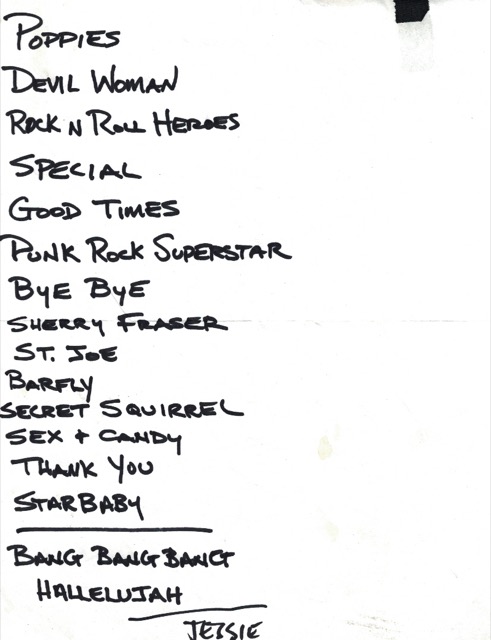 POPPIES
DEVIL WOMAN
ROCK N ROLL HEROES
SPECIAL
GOOD TIMES
PUNK ROCK SUPERSTAR
BYE BYE
SHERRY FRASER
ST. JOE
BARFLY
SECRET SQUIRREL
SEX + CANDY
THANK YOU
STARBABY
BANG BANG BANG
HALLELUJAH
JESSIE